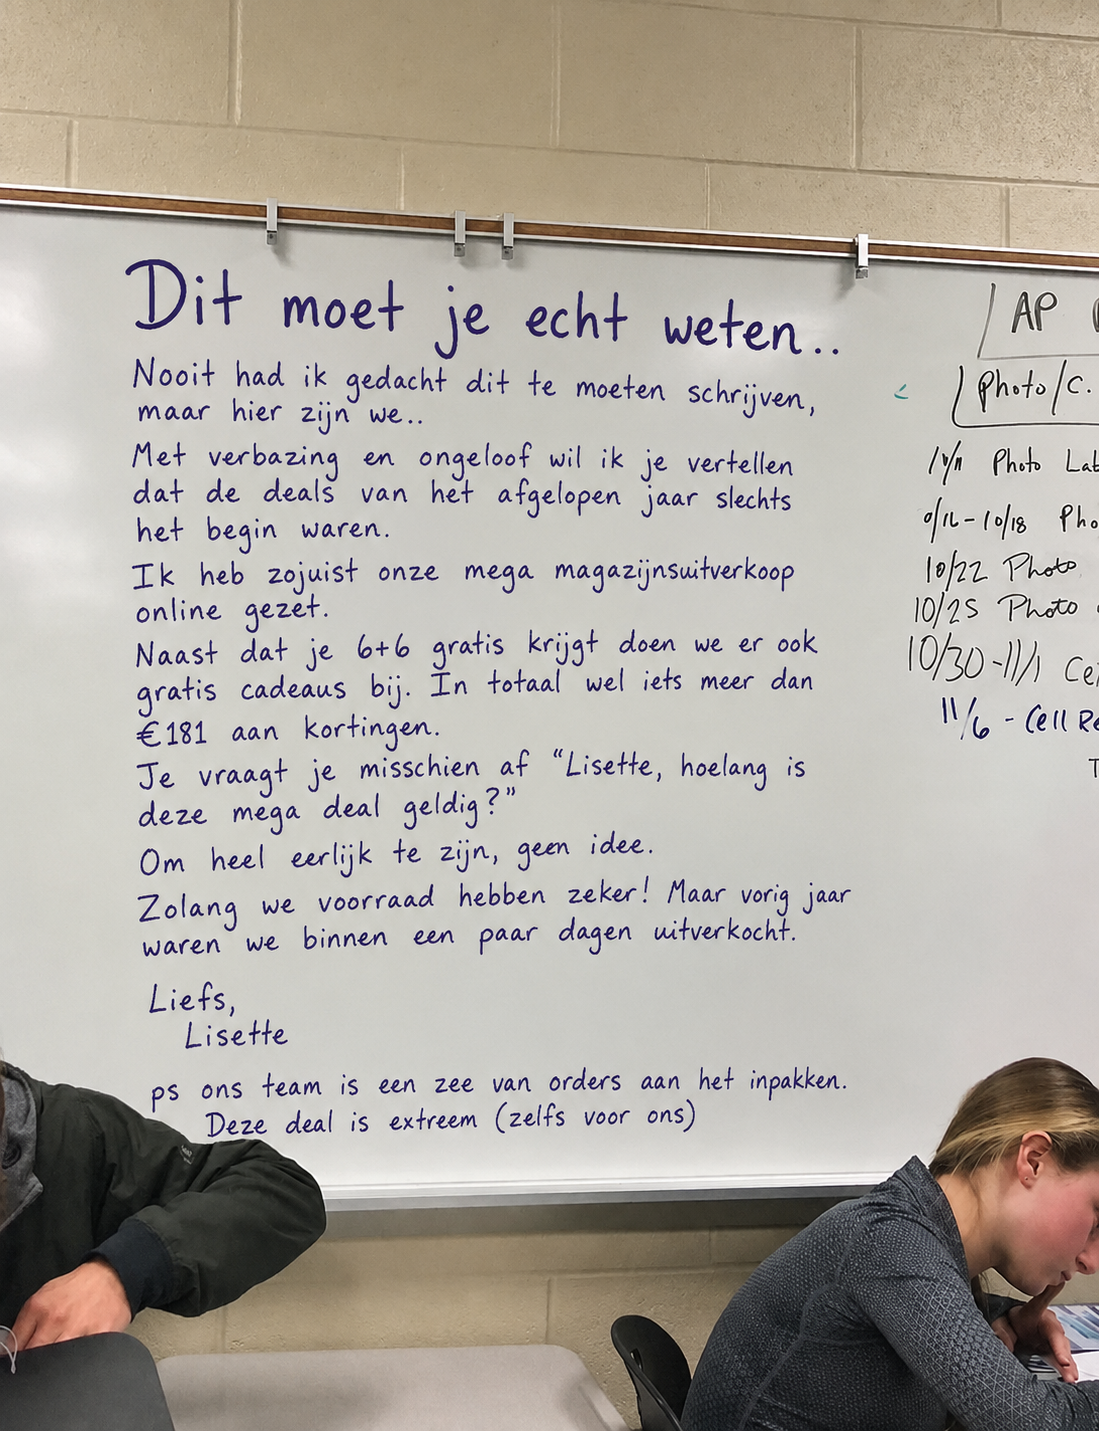 Dit moet je echt weten..
Nooit had ik gedacht dit te moeten schrijven,
maar hier zijn we..
Met verbazing en ongeloof wil ik je vertellen
dat de deals van het afgelopen jaar slechts
het begin waren.
Ik heb zojuist onze mega magazijnsuitverkoop
online gezet.
Naast dat je 6+6 gratis krijgt doen we er ook
gratis cadeaus bij. In totaal wel iets meer dan
€181 aan kortingen.
Je vraagt je misschien af “Lisette, hoelang is
deze mega deal geldig?”
Om heel eerlijk te zijn, geen idee.
Zolang we voorraad hebben zeker! Maar vorig jaar
waren we binnen een paar dagen uitverkocht.
Liefs,
Lisette
ps ons team is een zee van orders aan het inpakken.
Deze deal is extreem (zelfs voor ons)
AP
Photo/C.
Photo
10/18
10/22 Photo
10/25 Photo
10/30-11/1
11/6 - Cell